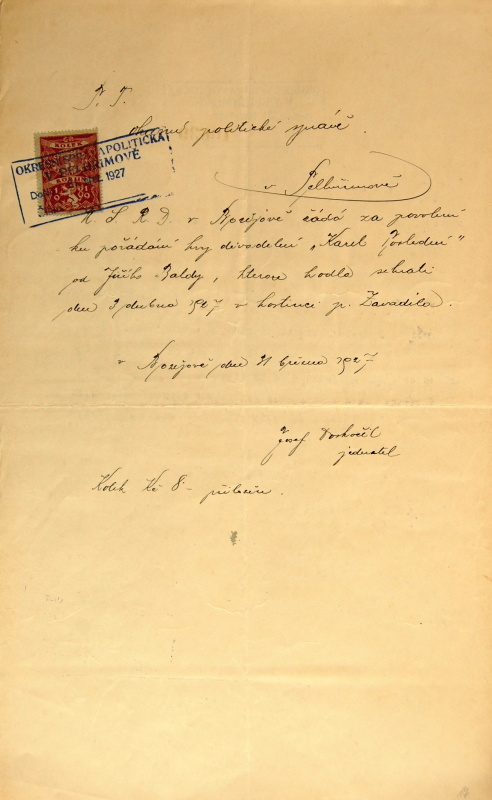 P. T.
Okresní politické správě
v Pelhřimově
OKRESNÍ SPRÁVA POLITICKÁ
V PELHŘIMOVĚ
1927
KOLEK
M. S. R. D. v Kozějově žádá za povolení
ku pořádání hry divadelní „Karel Poslední“
od Jiřího Baldy, kterou hodlá sehráti
dne 3 dubna 1927 v hostinci p. Zavadila.
v Kozějově dne 21 března 1927
Josef Doskočil
jednatel
Kolek Kč 8·– přiložen.